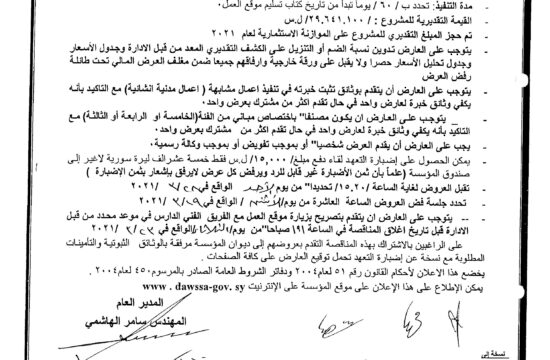 - مدة التنفيذ: تحدد ب / ٦٠ / يوما تبدأ من تاريخ كتاب تسليم موقع العمل.
- القيمة التقديرية للمشروع : /٢٩.٦٤١.١٠٠/ ل.س
- تم حجز المبلغ التقديري للمشروع على الموازنة الاستثمارية لعام ٢٠٢١
- يتوجب على العارض تدوين نسبة الضم أو التنزيل على الكشف التقديري المعد من قبل الادارة وجدول الأسعار
وجدول تحليل الأسعار حصرا ولا يقبل على ورقة خارجية وارفاقهم جميعا ضمن مغلف العرض المالي تحت طائلة
رفض العرض
- يتوجب على العارض أن يتقدم بوثائق تثبت خبرته في تنفيذ اعمال مشابهة ( اعمال مدنية انشائية) مع التاكيد بأنه
يكفي وثائق خبرة لعارض واحد في حال تقدم اكثر من مشترك بعرض واحد.
- يتوجب على العارض ان يكون مصنفا" باختصاص مباني من الفئة(الخامسة او الرابعة أو الثالثة) مع
التاكيد بأنه يكفي وثائق خبرة لعارض واحد في حال تقدم اكثر من مشترك بعرض واحد.
- يجب على العارض أن يقدم العرض شخصيا" أو بموجب تفويض أو بموجب وكالة رسمية.
- يمكن الحصول على إضبارة التعهد لقاء دفع مبلغ/ ١٥,٠٠٠/ ل.س فقط خمسة عشرالف ليرة سورية لاغير إلى
صندوق المؤسسة (علماً بأن ثمن الأضبارة غير قابل للرد ويرفض كل عرض لايرفق بإشعار يثمن الإضبارة )
- تقبل العروض لغاية الساعة /١٥.٢٠/ تحديدا" من يوم/الأحد الواقع في / / ٢٠٢١/٣
- تحدد جلسة فض العروض الساعة العاشرة من يوم/الأثنين الواقع في / ٢٩/ ٢٠٢١/٣
-- يتوجب على العارض ان يتقدم بتصريح بزيارة موقع العمل مع الفريق الفني الدارس في موعد محدد من قبل
الادارة قبل تاريخ اغلاق المناقصة في الساعة /٩/ صباحا"من يوم/الثلاثاء/الواقع في / ٢٠٢١/٣/٢٣
على الراغبين بالاشتراك بهذه المناقصة التقدم بعروضهم إلى ديوان المؤسسة مرفقة بالوثائق الثبوتية والتأمينات
المطلوبة مع نسخة عن إضبارة التعهد تحمل توقيع العارض على كافة الصفحات .
يخضع هذا الاعلان لأحكام القانون رقم ٥١ لعام ٢٠٠٤ ودفاتر الشروط العامة الصادر بالمرسوم ٤٥٠ لعام ٢٠٠٤
يمكن الإطلاع على هذا الإعلان على موقع المؤسسة على الإنترنيت www . dawssa-gov. sy
المدير العام
المهندس سامر الهاشمي
نسخة إلى